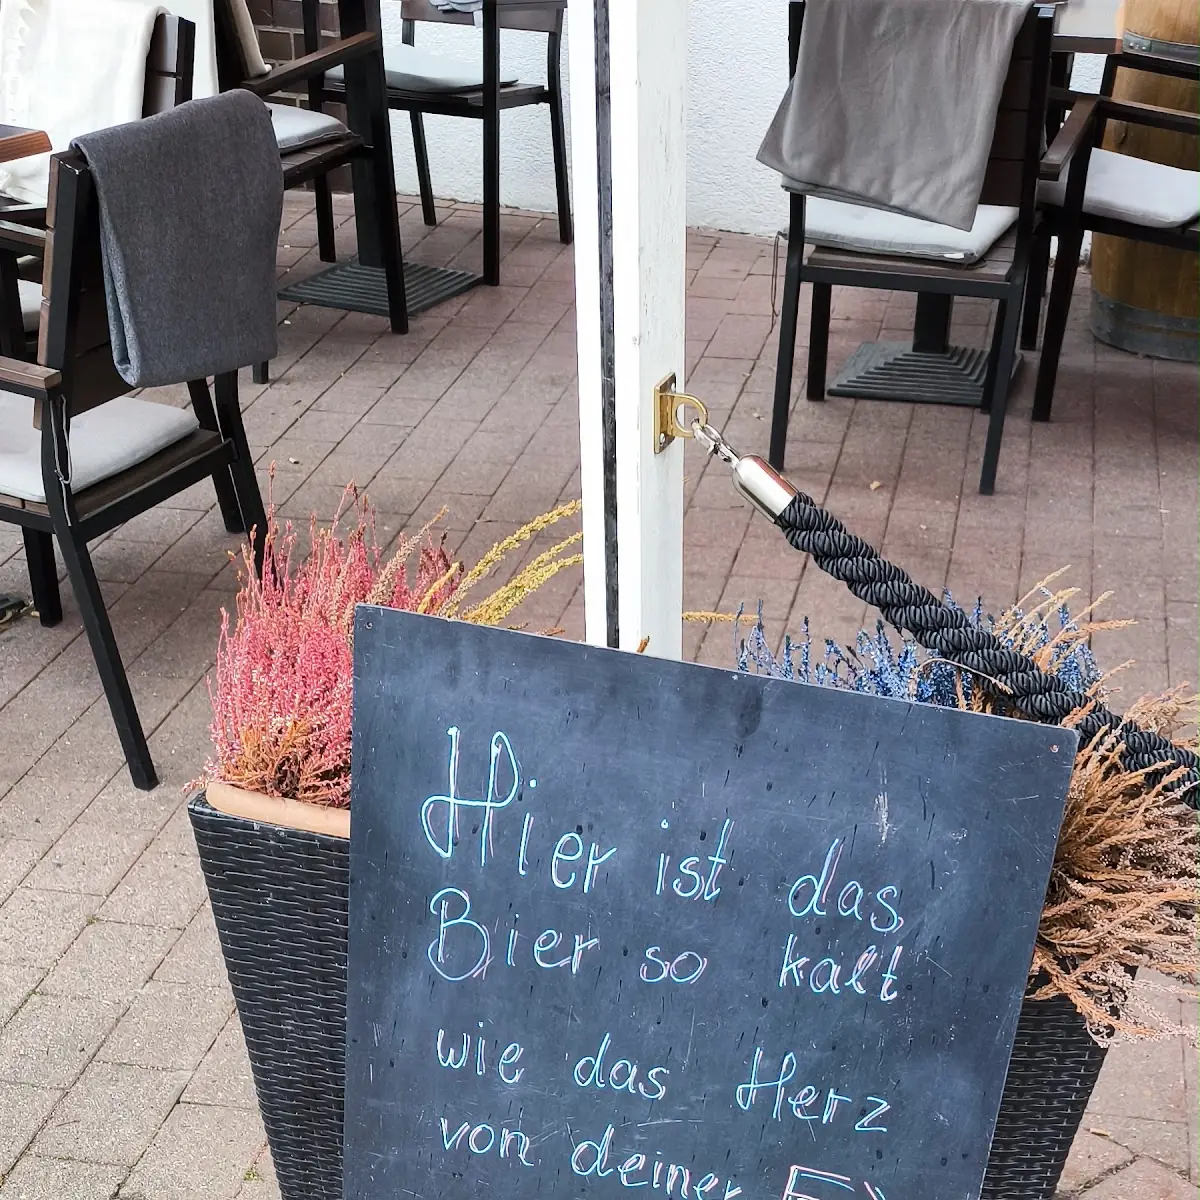 Hier ist das
Bier so kalt
wie das Herz
von deiner